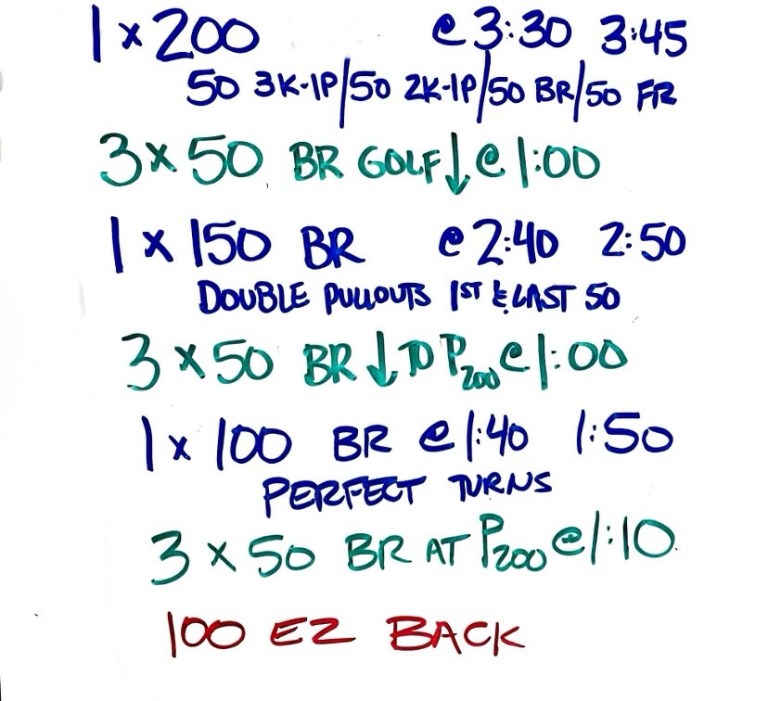 1 x 200 @ 3:30 3:45
50 3K-1P/50 2K-1P/50 BR/50 FR
3 x 50 BR GOLF↓@ 1:00
1 x 150 BR @ 2:40 2:50
DOUBLE PULLOUTS 1ST & LAST 50
3 x 50 BR ↓ TO P200 @ 1:00
1 x 100 BR @ 1:40 1:50
PERFECT TURNS
3 x 50 BR AT P200 @ 1:10
100 EZ BACK